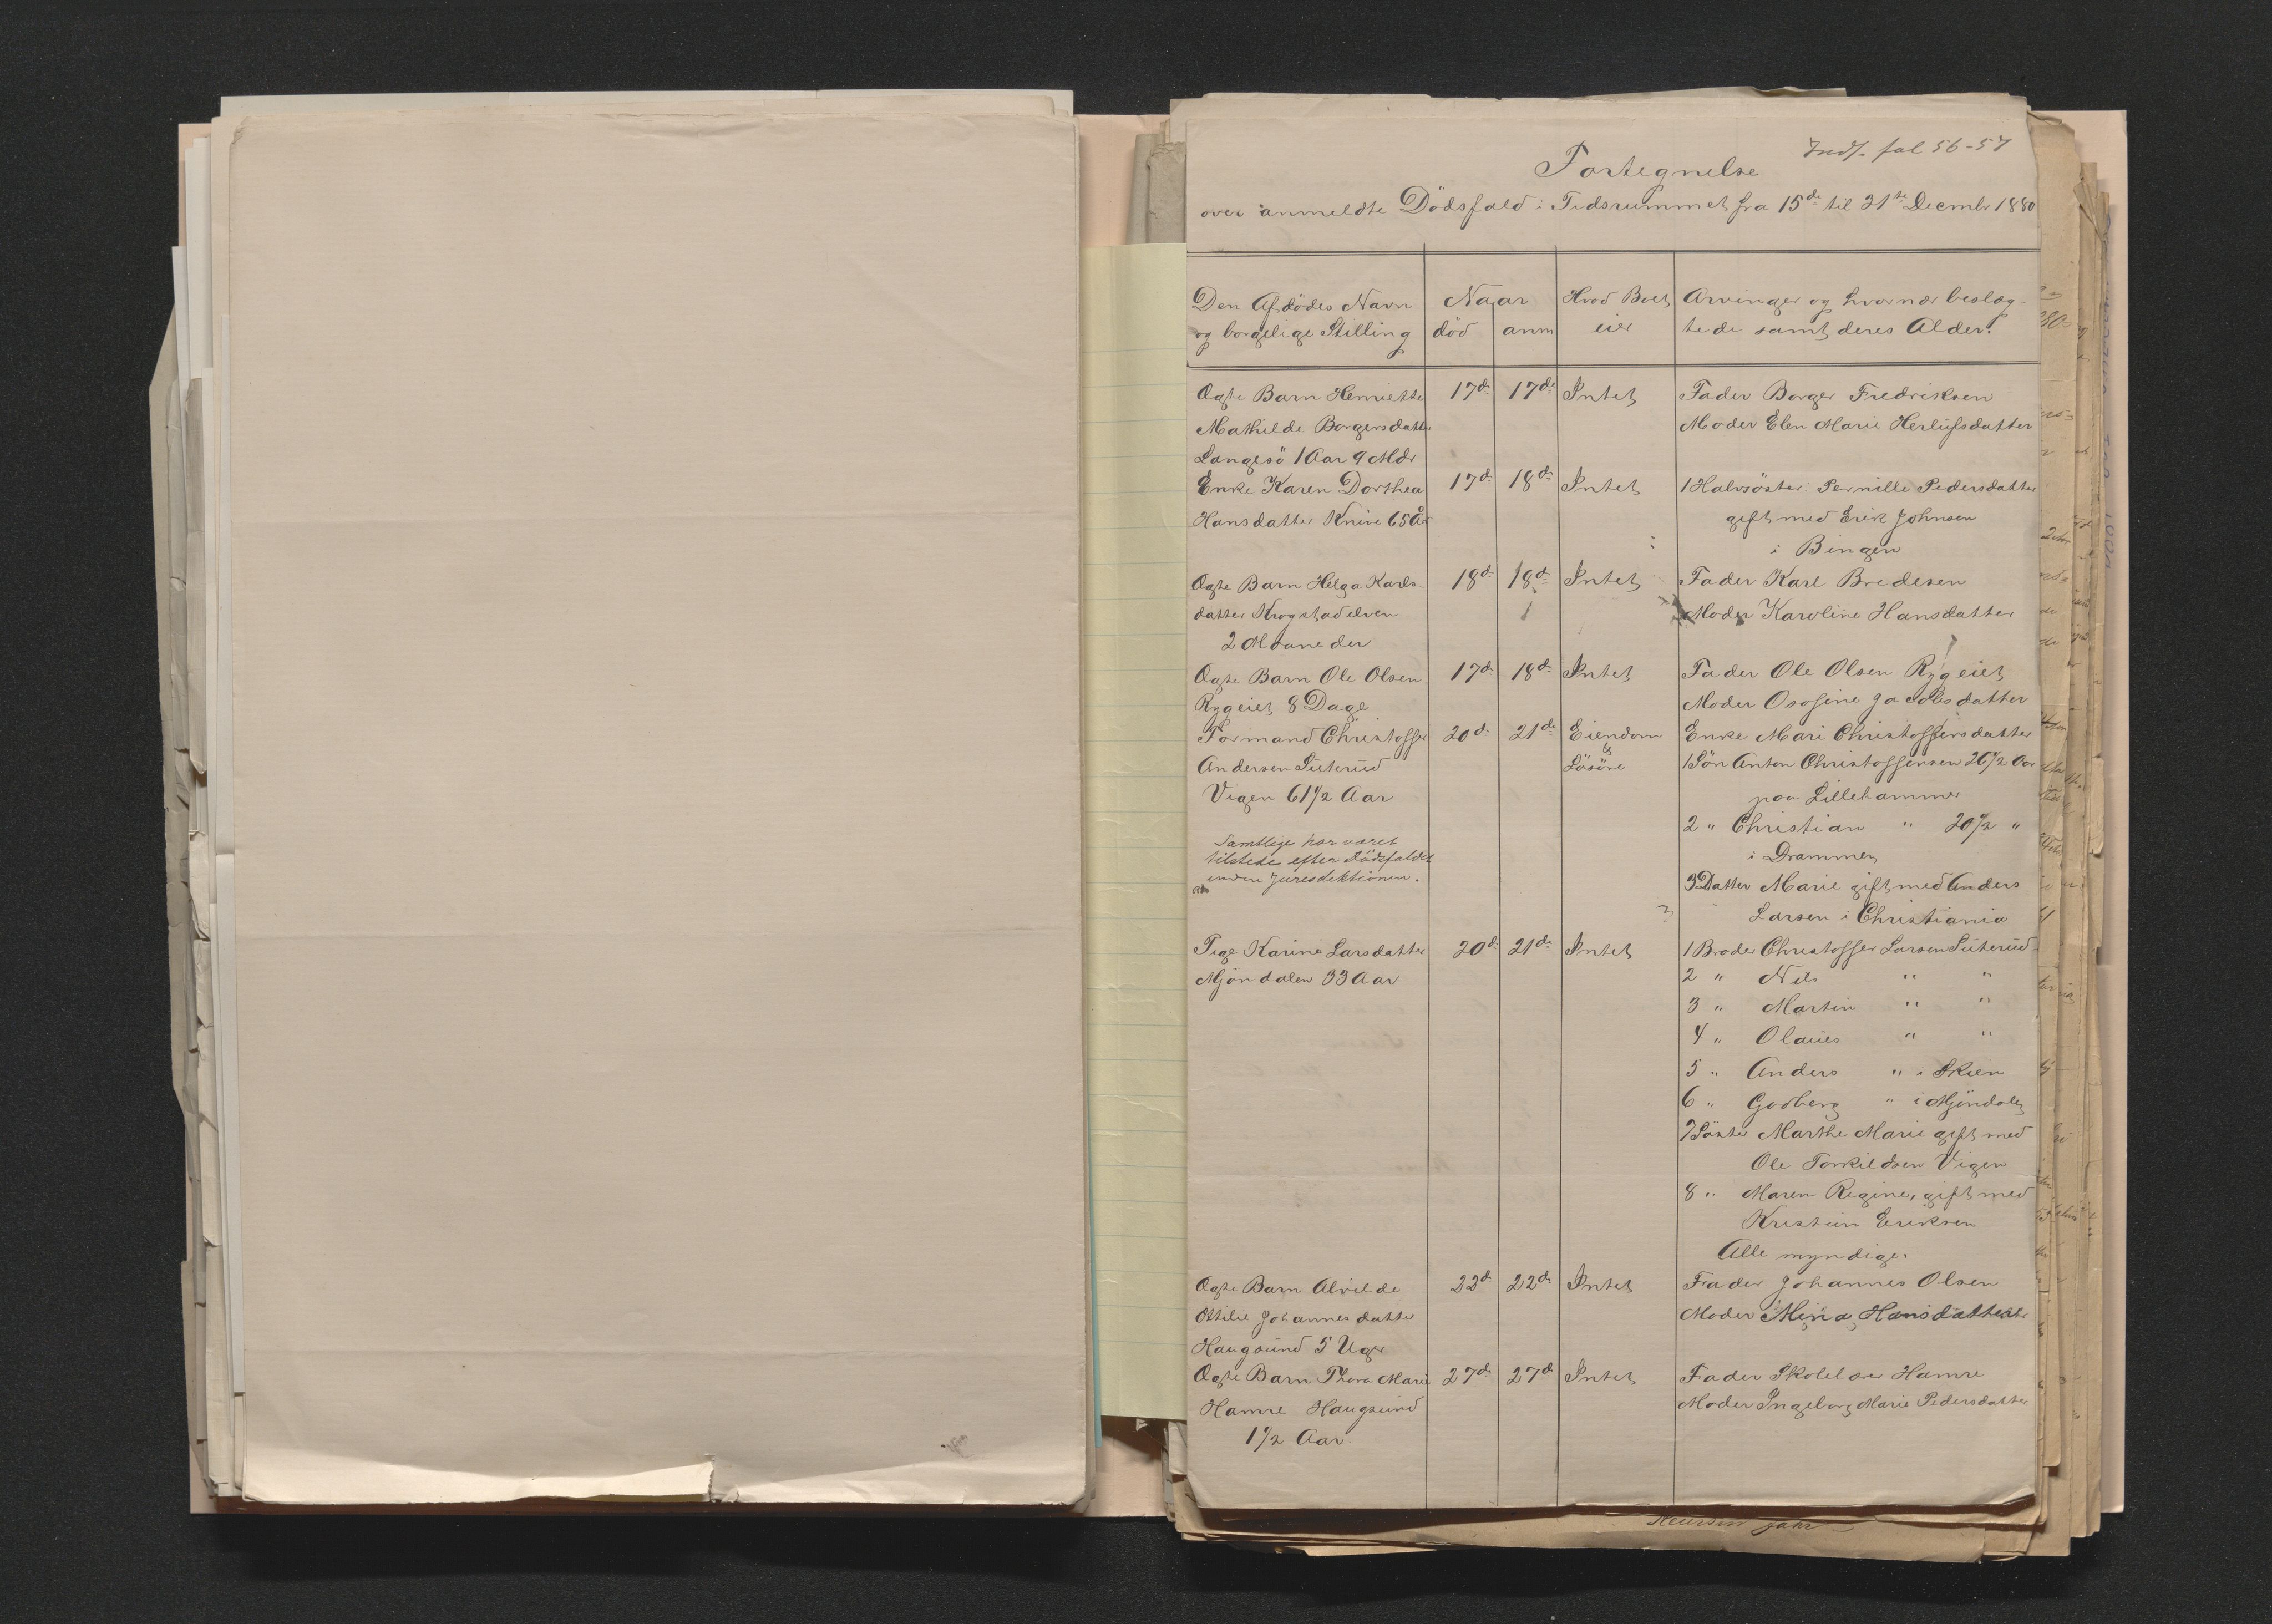 Indf. fol 56-57
Fortegnelse
over anmeldte Dödsfald i Tidsrummet fra 15de til 31te Decmbr 1880
Den Afdödes Navn
og borgelige Stilling
Naar
död
anm
Hvad Boet
eier
Arvinger og hvor nær beslæg-
tede samt deres Alder.
Ægte Barn Henriette 17de 17de Intet Fader Borger Fredriksen
Mathilde Borgersdatter Moder Elen Marie Herlufsdatter
Langesö 1 Aar 9 Mdr
Enke Karen Dorthea 17de 18de Intet 1 Halvsöster Pernille Pedersdatter
Hansdatter Knive 65 Aar gift med Erik Johnsen
i Bingen
Ægte Barn Helga Karls- 18de 18de Intet Fader Karl Bredesen
datter Krogstadelven Moder Karoline Hansdatter
2 Maaneder
Ægte Barn Ole Olsen 17de 18de Intet Fader Ole Olsen Rygeiet
Rygeiet 8 Dage Moder Jacobsdatter
Formand Christoffer 20de 21de Eiendom Enke Mari Christoffersdatter
Andersen Suterud & Lösöre 1 Sön Anton Christoffersen 26 1/2 Aar
Vigen 61 1/2 Aar paa Lillehammer
2 " Christian " 20 1/2 "
Samtlige har været
tilstede efter Dödsfaldet
inden Juresdektionen.
i Drammen
3 Datter Marie gift med Anders
Larsen i Christiania
Pige Karine Larsdatter 20de 21de Intet 1 Broder Christoffer Larsen Suterud
Mjöndalen 33 Aar 2 " Nils " "
3 " Martin " "
4 " Olaus " "
5 " Anders " i Skien
6 " Gudberg " i Mjöndalen
7 Söster Marthe Marie gift med
Ole Torkildsen Vigen
8 " Maren Regine, gift med
Kristian Eriksen
Alle myndige.
Ægte Barn Alvilde 22de 22de Intet Fader Johannes Olsen
Ottilie Johannesdatter Moder Mina Hansdatter
Haugsund 5 Uger
Ægte Barn Thora Marie 27de 27de Intet Fader Skolelærer Hamre
Hamre Haugsund Moder Ingeborg Marie Pedersdatter
1 1/2 Aar